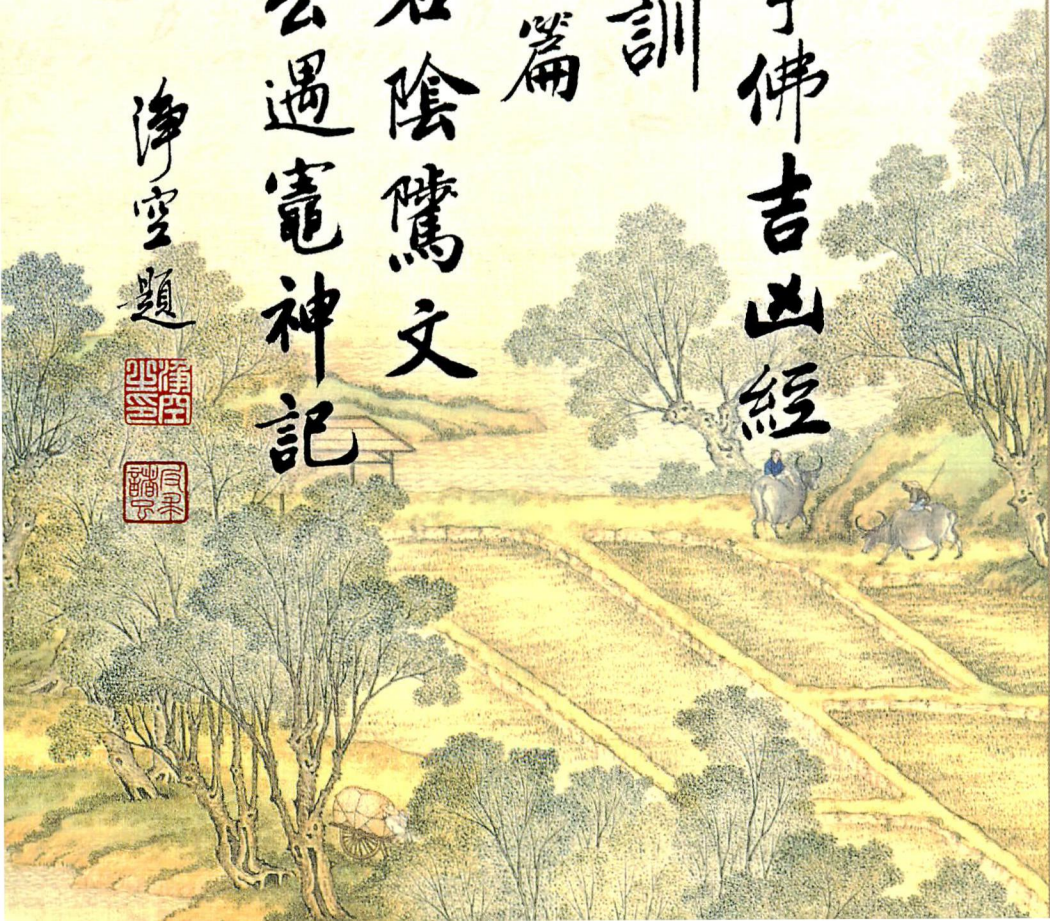 佛吉凶經
訓
篇
君陰騭文
公遇竈神記
淨空題
淨空之印